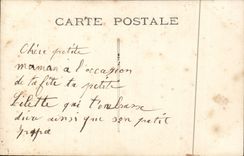 CARTE POSTALE
Chère petite
maman à l'occasion
de ta fête ta petite
Lilette qui t'embrasse
dur ainsi que son petit